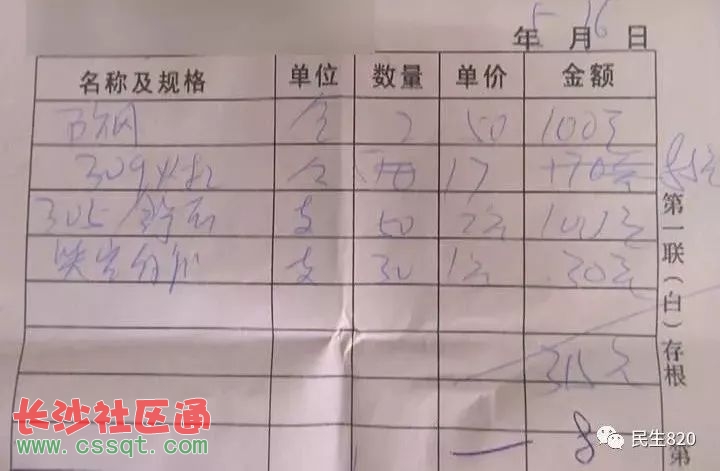 年 5 月 16 日
名称及规格 单位 数量 单价 金额
个 2 50 100元
309 个 17 170元 85元
305 支 50 2元 100元
支 30 1元 30元
315元
第一联(白)存根
第
长沙社区通
www.cssqt.com
民生820